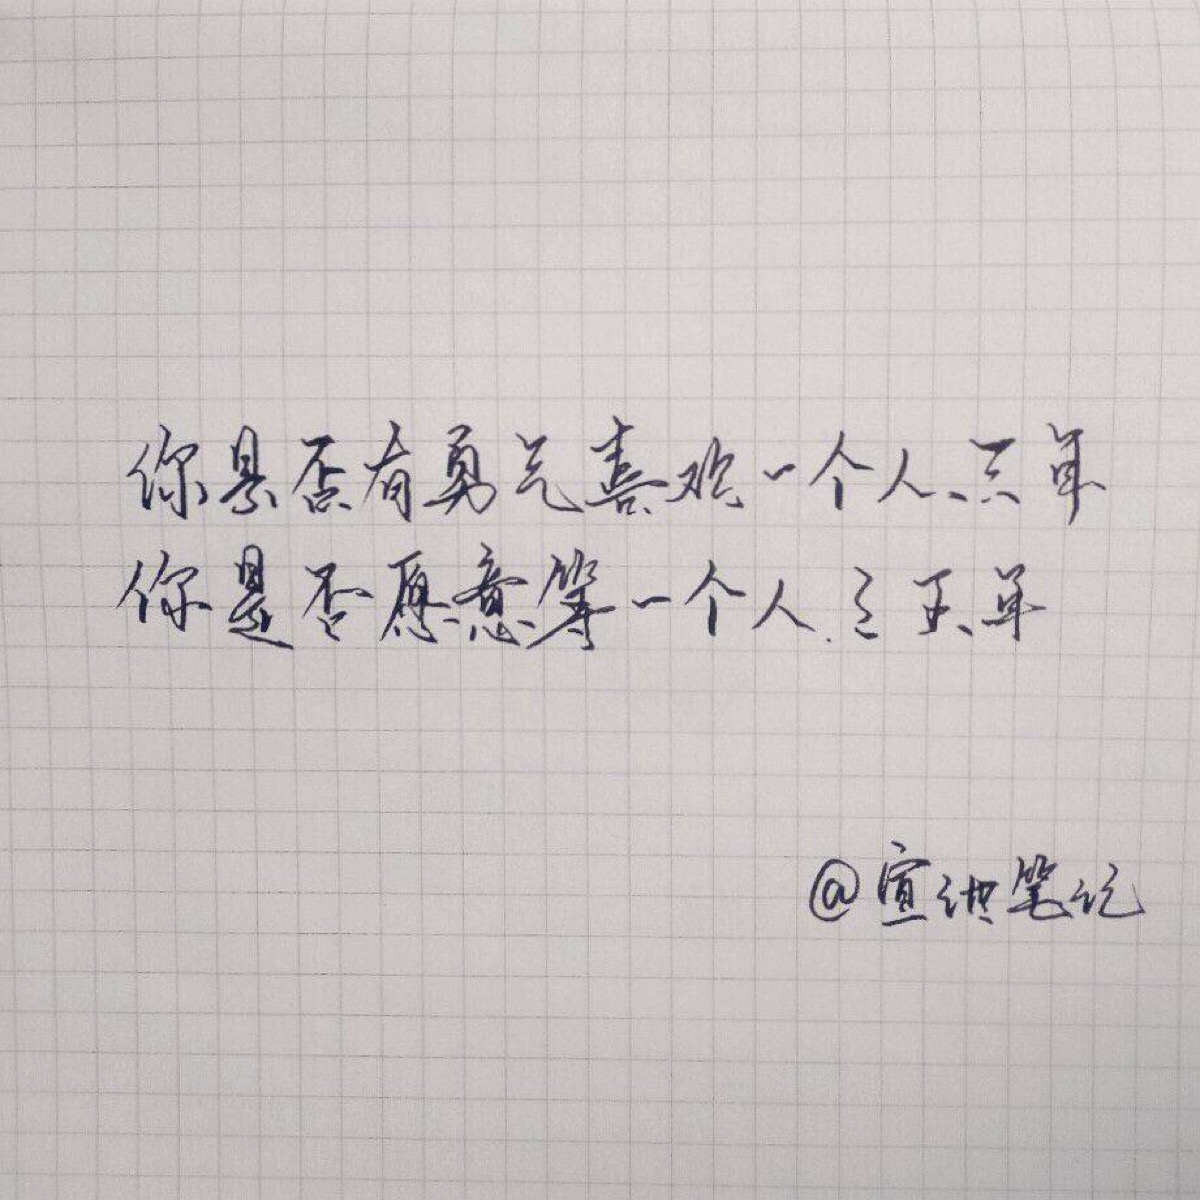 你是否有勇气喜欢一个人、三年
你是否愿意等一个人.三五年
@宣 笔记